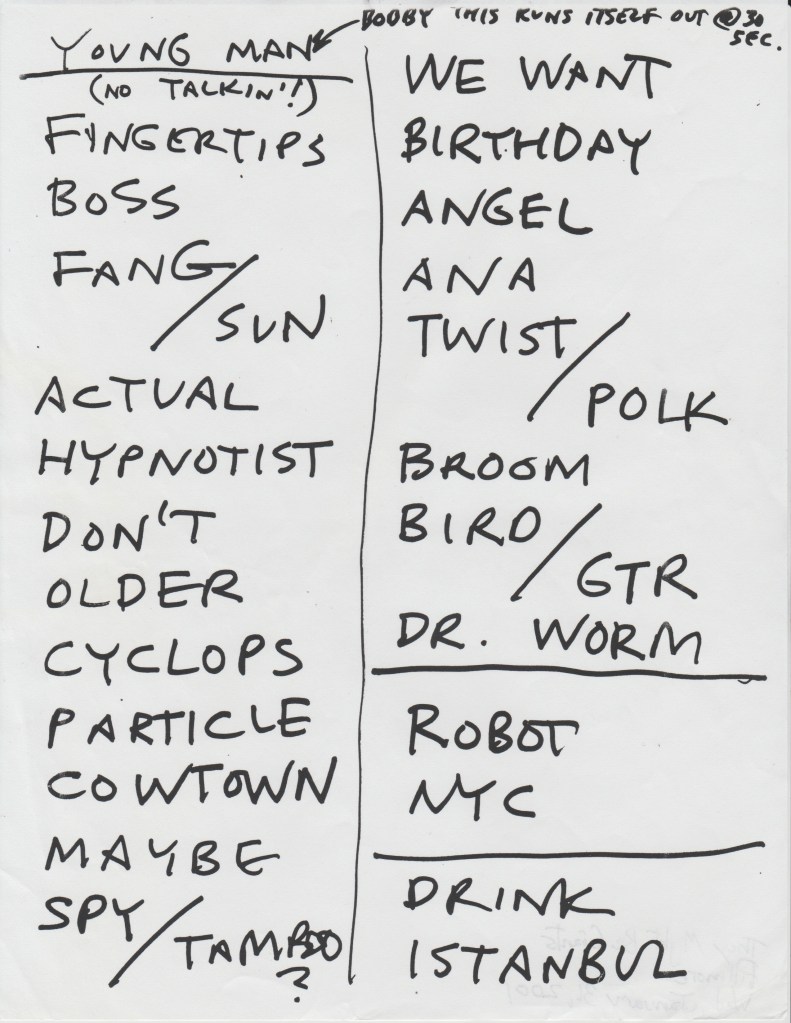 BOOBY THIS RUNS ITSELF OUT @ 30
SEC.
YOUNG MAN
(NO TALKIN'!!)
FINGERTIPS
BOSS
FANG/
SUN
ACTUAL
HYPNOTIST
DON'T
OLDER
CYCLOPS
PARTICLE
COWTOWN
MAYBE
SPY/
TAMBO
?
WE WANT
BIRTHDAY
ANGEL
ANA
TWIST/
POLK
BROOM
BIRD/
GTR
DR. WORM
ROBOT
NYC
DRINK
ISTANBUL